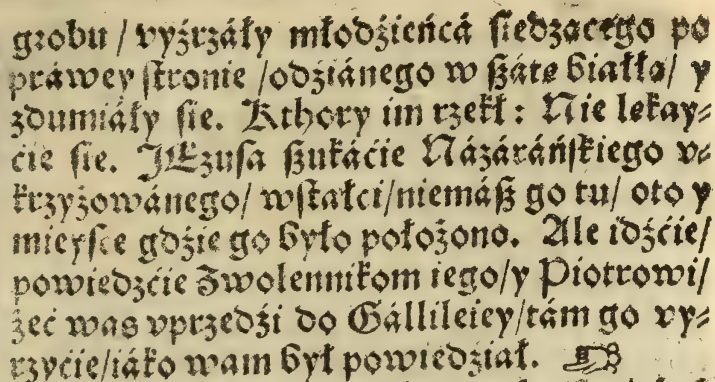 grobu / vyźrzáły młodźieńcá siedzącego po
práwey stronie /odźiánego w szátę białłą/ y
zdumiáły sie. Kthory im rzekł: Nie lekay⸗
cie sie. JEzusa szukáćie Názáráńskiego v⸗
krzyżowánego/ wstałci/niemász go tu/ oto y
mieysce gdźie go było położono. Ale idźćie/
powiedzćie Zwolennikom iego/y Piotrowi/
żeć was vprzedźi do Gállileiey/tám go vy⸗
rzyćie/iáko wam był powiedźiał. ☞